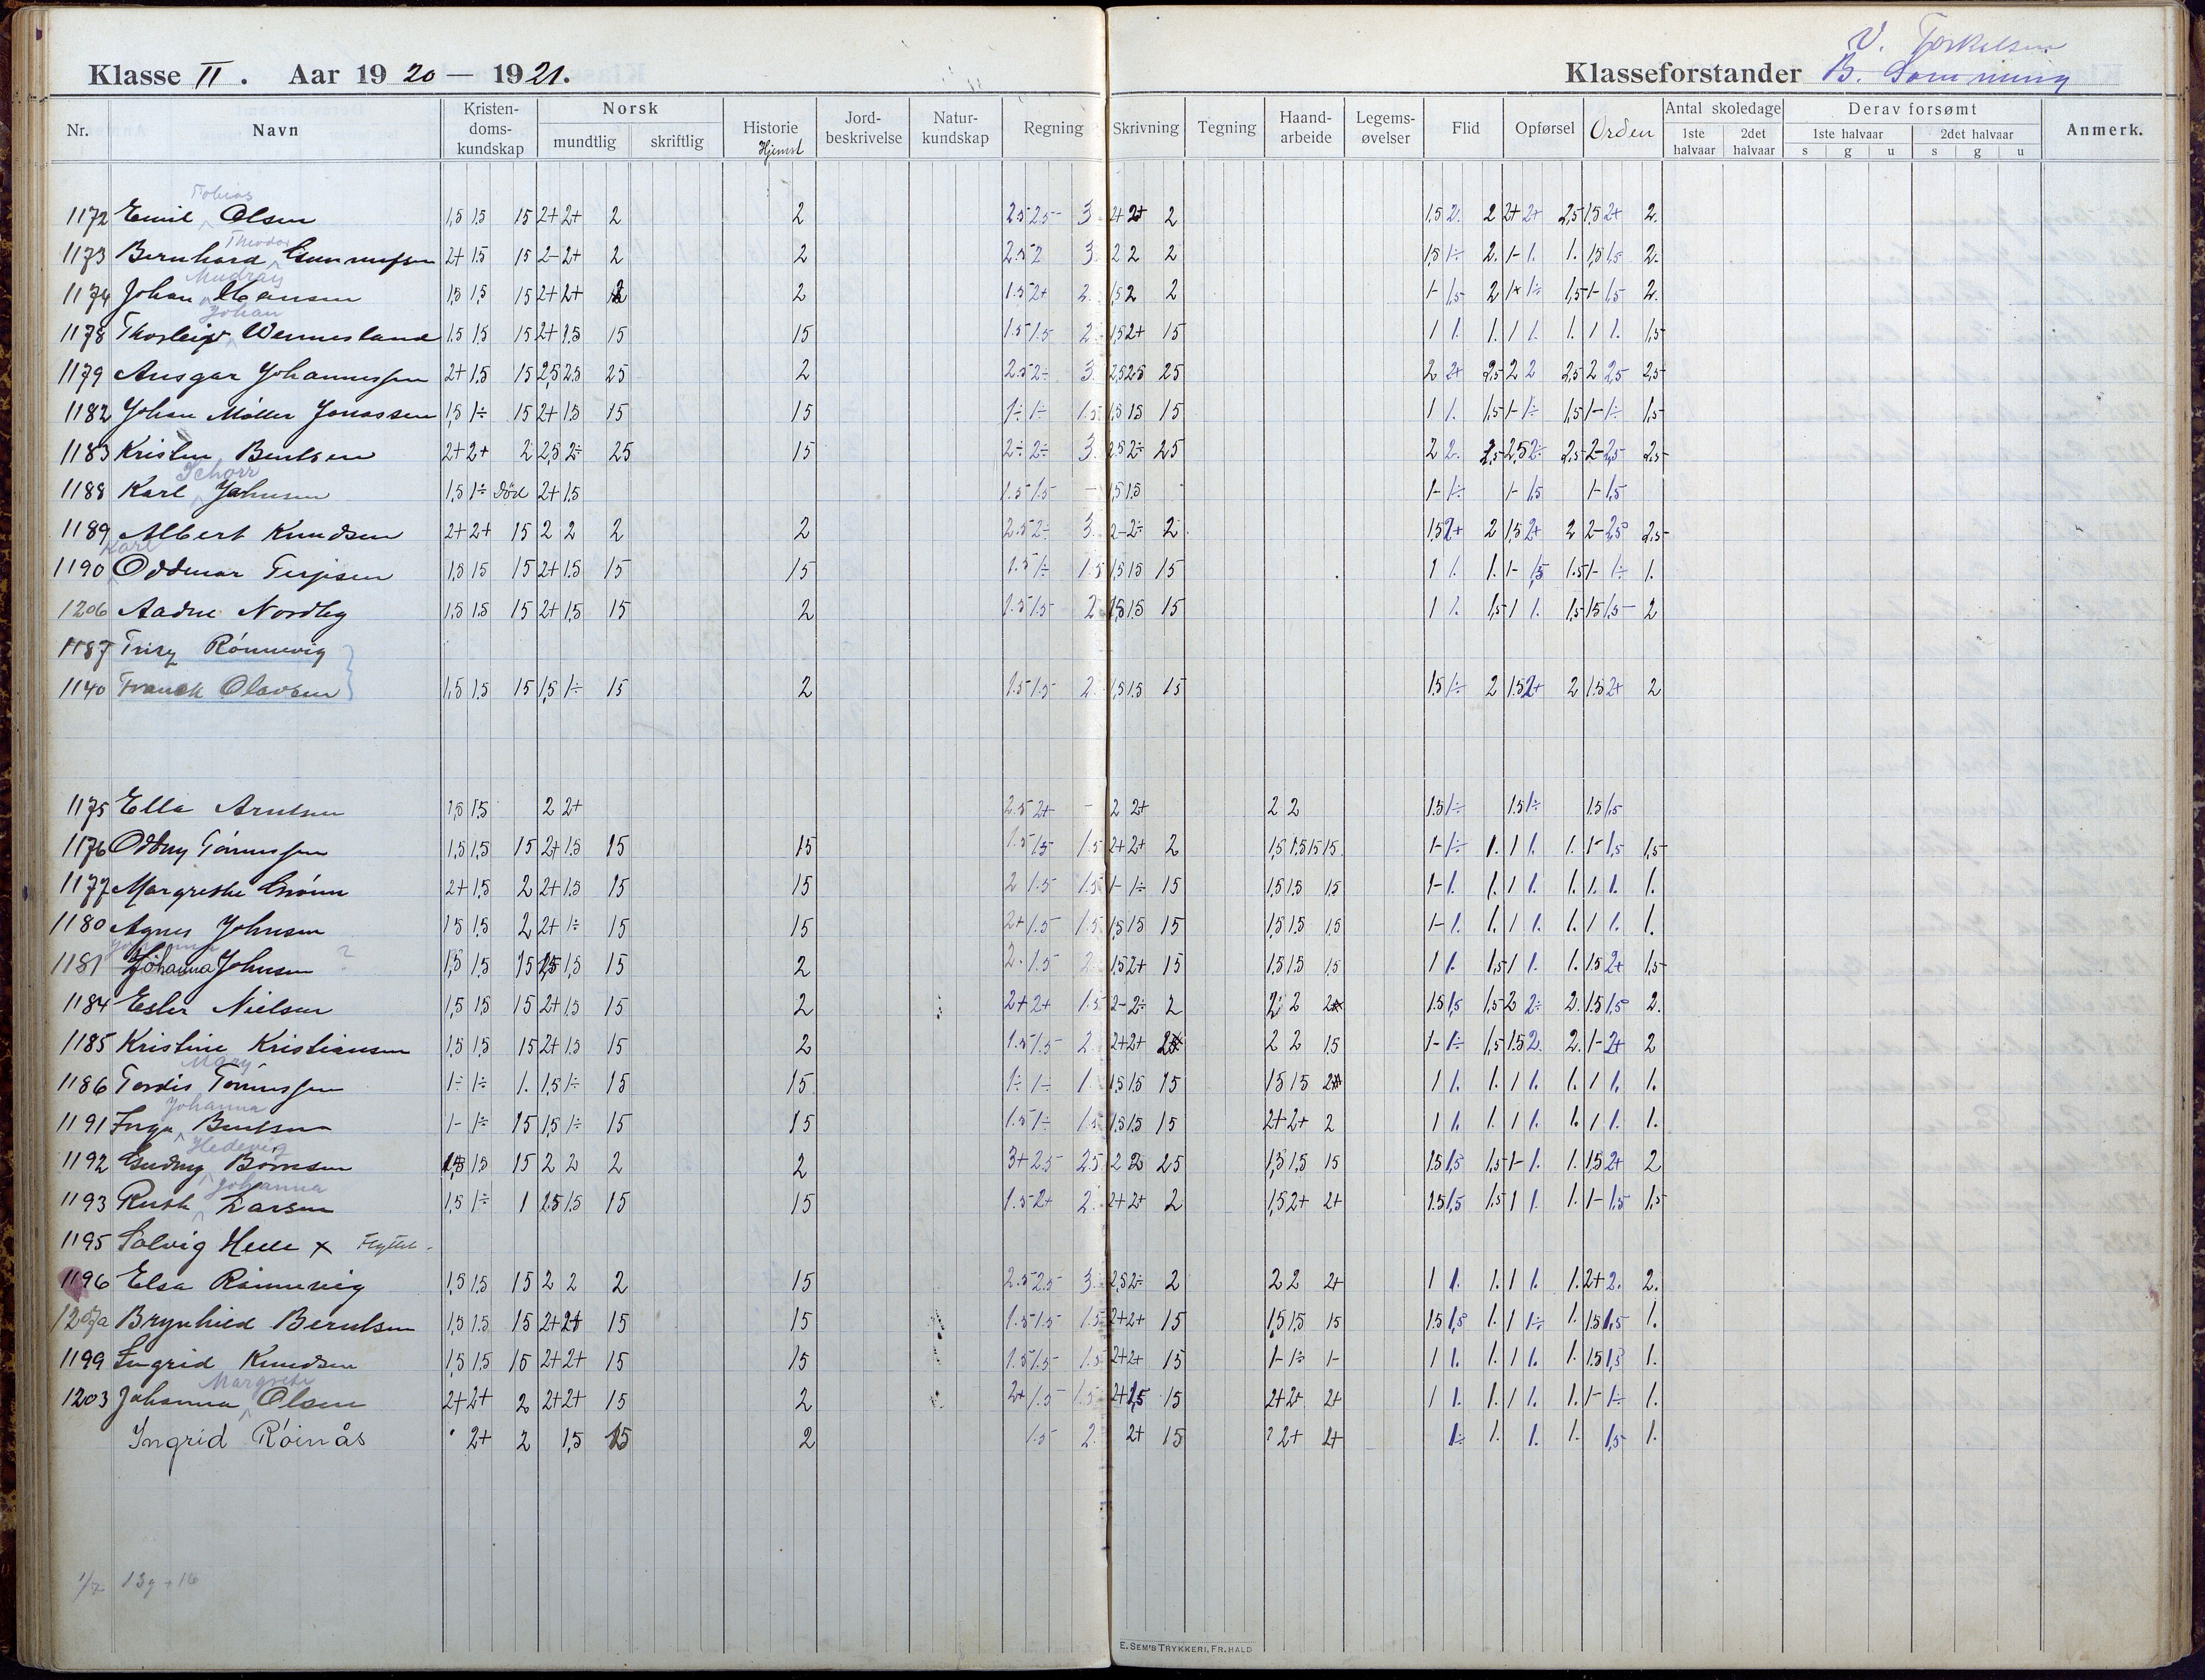 V. Torkelsen
Klasse II. Aar 1920 — 1921. Klasseforstander B.
Nr. Navn Kristendomskundskap Norsk mundtlig skriftlig Historie Hjemst Jordbeskrivelse Naturkundskap Regning Skrivning Tegning Haandarbeide Legemsøvelser Flid Opførsel Orden Antal skoledage 1ste halvaar 2det halvaar Derav forsømt 1ste halvaar s g u 2det halvaar s g u Anmerk.
Tobias
1172 Emil Olsen 1,5 1,5 15 2+ 2+ 2 2 2.5 2.5- 3 2+ 2+ 2 1,5 2. 2 2+ 2+ 2,5 1,5 2+ 2.
Theodor
1173 Bernhard Gunnufsen 2+ 1,5 15 2- 2+ 2 2 2.5 2 3 2 2 2 1,5 1÷ 2. 1- 1. 1. 1,5 1,5 2.
1174 Johan Hansen 1,5 1,5 15 2+ 2+ 2 2 1.5 2+ 2. 1,5 2 2 1- 1,5 2 1- 1÷ 1,5 1- 1,5 2.
Johan
1178 Thorleif Wennesland 1,5 1,5 15 2+ 1,5 15 15 1.5 1.5 2 1,5 2+ 15 1 1. 1. 1 1. 1. 1 1. 1,5
1179 Ansgar Johannessen 2+ 1,5 15 2,5 2,5 25 2 2.5 2÷ 3. 2,5 2,5 25 2 2+ 2,5 2 2 2,5 2 2,5 2,5
1182 Johan Møller Jonassen 1,5 1÷ 15 2+ 1,5 15 15 1÷ 1÷ 1.5 1,5 1,5 15 1 1. 1,5 1- 1÷ 1,5 1- 1÷ 1,5
1183 Kristen Bentsen 2+ 2+ 2 2,5 2÷ 25 15 2÷ 2÷ 3. 2,5 2÷ 25 2 2. 2,5 2,5 2÷ 2,5 2- 2,5 2,5
Schorr
1188 Karl Johnsen 1,5 1÷ Død 2+ 1,5 1.5 1.5 - 1,5 1,5 1- 1÷ 1- 1,5 1- 1,5
1189 Albert Knudsen 2+ 2+ 15 2 2 2 2 2.5 2÷ 3. 2- 2÷ 2 1,5 2+ 2 1,5 2+ 2 2- 2,5 2,5
Karl
1190 Oddmar Terjesen 1,5 1,5 15 2+ 1.5 15 15 1.5 1÷ 1.5 1,5 1,5 15 1 1. 1. 1- 1,5 1.5 1- 1÷ 1.
1206 Aadne Nordby 1,5 1,5 15 2+ 1,5 15 2 1.5 1.5 2 1,5 1,5 15 1 1. 1,5 1 1. 1,5 1,5 1,5 2
1187 Rönnevig
1140 Franck Olavsen 1,5 1,5 15 1,5 1÷ 15 2 1.5 1.5 2. 1,5 1.5 15 1,5 1÷ 2 1.5 2+ 2 1.5 2+ 2
1175 Ella Arntsen 1,5 1,5 2 2+ 2.5 2+ - 2 2+ 2 2 1.5 1÷ 1.5 1÷ 1.5 1,5
1176 Oddny Tønnessen 1,5 1,5 15 2+ 1.5 15 15 1.5 1.5 1.5 2+ 2+ 2 1,5 1.5 1.5 15 1- 1÷ 1. 1 1. 1. 1- 1,5 1,5
1177 Margrethe Grönn 2+ 1,5 2 2+ 1.5 15 15 2 1.5 1.5 1- 1÷ 15 1,5 1,5 15 1- 1. 1. 1 1. 1. 1. 1. 1.
1180 Agnes Johnsen 1,5 1,5 2 2+ 1÷ 15 15 2+ 1.5 1.5 1,5 1,5 15 1,5 1.5 1,5 1- 1. 1. 1 1. 1. 1 1. 1.
1181 Johanna Johnsen ? 1,5 1,5 15 1,5 1,5 15 2 2- 1.5 2 1,5 2+ 15 1,5 1.5 1,5 1 1. 1,5 1 1. 1. 1.5 2+ 1,5
1184 Ester Nielsen 1,5 1,5 15 2+ 1,5 15 2 2+ 2+ 1.5 2- 2÷ 2 2 2 2+ 1.5 1,5 1,5 2 2÷ 2. 1.5 1,5 2.
1185 Kristine Kristiansen 1,5 1,5 15 2+ 1,5 15 2 1.5 1.5 2 2+ 2+ 2 2 2 1.5 1- 1÷ 1,5 1.5 2. 2. 1- 2+ 2
Mary
1186 Tordis Tönnessen 1÷ 1÷ 1. 1,5 1÷ 15 15 1÷ 1÷ 1 1,5 1,5 15 1.5 1.5 2 1 1. 1. 1 1. 1. 1 1. 1.
Johanna
1191 Inga Bentsen 1- 1÷ 15 1,5 1÷ 15 15 1.5 1÷ 1.5 1,5 1.5 15 2+ 2+ 2 1 1. 1. 1 1. 1. 1 1. 1.
Hedevig
1192 Gudny Börresen 1,5 1,5 15 2 2 2 2 3+ 2.5 2.5 2 2 25 1,5 1,5 15 1.5 1,5 1,5 1- 1. 1. 1.5 2+ 2
Johanna
1193 Ruth Larsen 1,5 1÷ 1 1.5 1,5 15 15 1.5 2+ 2. 2+ 2+ 2 1,5 2+ 2+ 1.5 1,5 1,5 1 1. 1. 1- 1,5 1,5
1195 Solvig Helle x Flyttet.
1196 Elsa Rönnevig 1,5 1,5 15 2 2 2 15 2.5 2.5 3. 2,5 2÷ 2 2 2 2+ 1 1. 1. 1 1. 1. 2+ 2. 2.
Brynhild Berntsen 1,5 1.5 15 2+ 2+ 15 15 1.5 1.5 1.5 2+ 2+ 15 1.5 1,5 15 1.5 1,5 1. 1 1÷ 1. 1.5 1,5 1.
1199 Ingrid Knudsen 1,5 1.5 15 2+ 2+ 15 15 1.5 1.5 1.5 2+ 2+ 15 1- 1÷ 1- 1 1. 1. 1 1. 1. 1.5 1,5 1.
Margrete
1203 Johanna Olsen 2+ 2+ 2 2+ 2+ 15 2 2+ 1.5 1.5 2+ 1,5 15 2+ 2+ 2+ 1 1. 1. 1 1. 1. 1- 1÷ 1.
Ingrid Röinås 2+ 2 1,5 15 2 1.5 2. 2+ 15 ? 2+ 2+ 1÷ 1. 1. 1. 1,5 1.
13g + 16
E. SEM'S TRYKKERI, FR.HALD